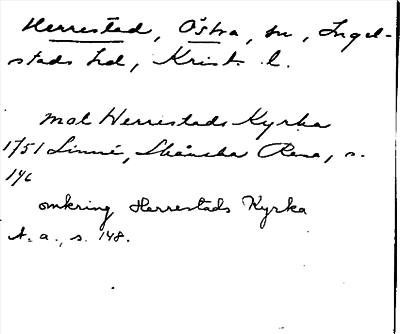 Herrestad, Östra, sn, Ingel-
stads hd, Krist. l.
mot Herrestads Kyrka
1751 Linné, Skånska Resa, s.
146
omkring Herrestads Kyrka
A. a., s. 148.